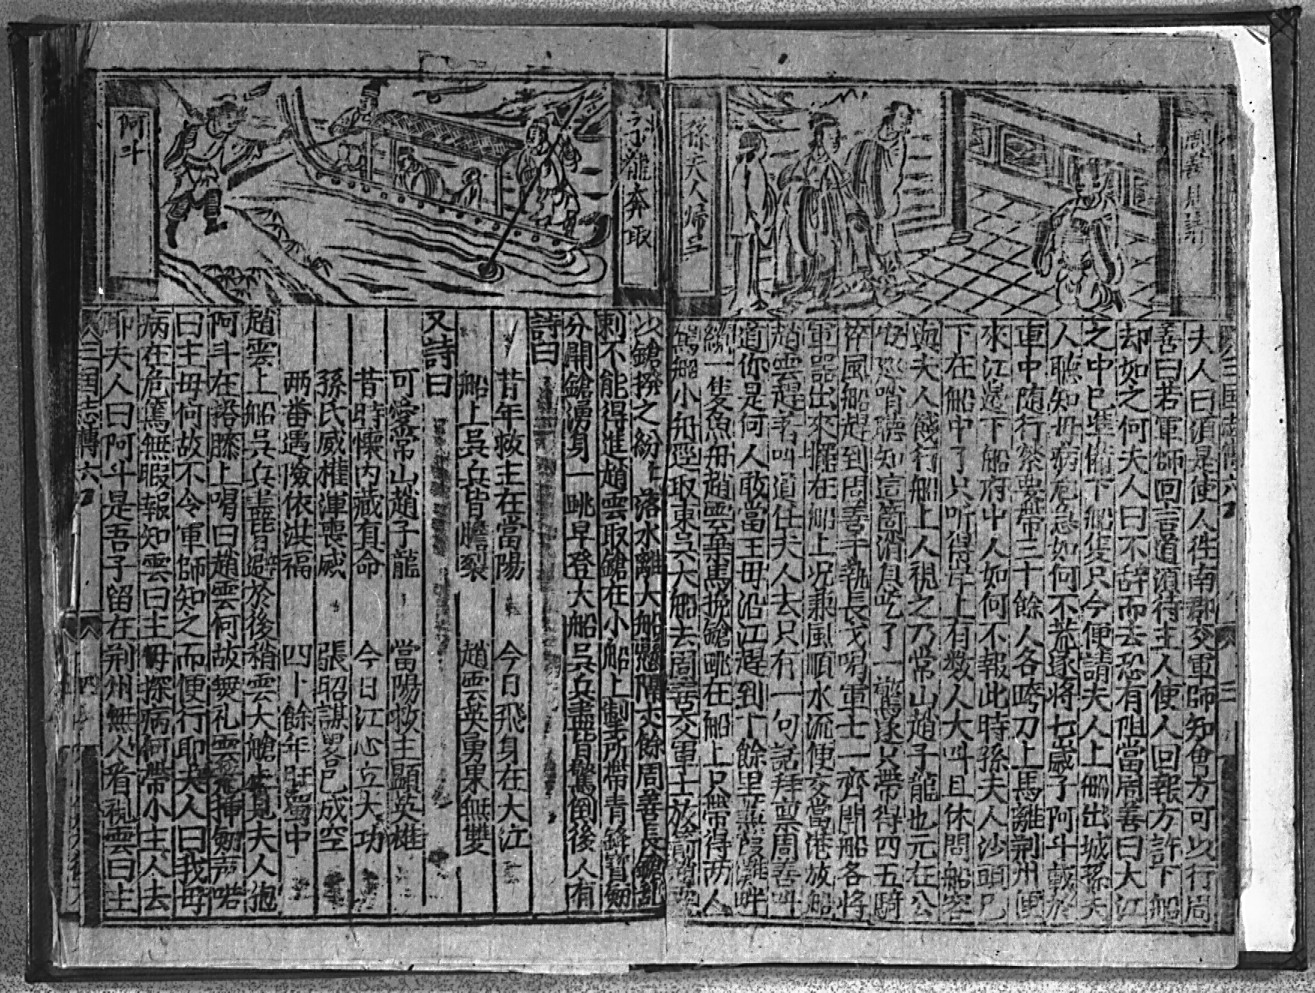 周善見請
孫夫人歸吳
夫人曰須是使人往南郡交軍師知會方可以行周
善曰若軍師回言道須待主人使人回報方許下船
却如之何夫人曰不辞而去恐有阻當周善曰大江
之中已准備下船隻只今便請夫人上船出城孫夫
人聽知母病危急如何不荒遂將七歲子阿斗載於
車中随行祭要帶三十餘人各跨刀上馬離荆州便
來江邊下船府中人如何不報此時孫夫人沙頭已
下在船中了只听得岸上有数人大叫且休開船容
與夫人餞行船上人視之乃常山趙子龍也元在公
安巡哨聽知這箇消息吃了一驚遂只帶得四五騎
猝風船趕到周善手執長戈喝軍士一齊開船各將
軍器出來擺在船上况兼風順水流便交當港放船
趙雲趕着叫道住夫人去只有一句話拜禀周善叫
道你是何人敢當王母沿江趕到十餘里蘆葭灘畔
纜一隻魚舟趙雲棄馬挽鎗跳在船上只帶得两人
駕船小舟徑取東吳大船去周善交軍士放箭
子龍奔取
阿斗
以鎗撥之紛紛落水離大船懸隔丈餘周善長鎗乱
刺不能得進趙雲取鎗在小船上掣所帶青釭寳劔
分開鎗湧身一跳早登大船吳兵盡皆驚倒後人有
詩曰
昔年救主在當陽 今日飛身在大江
船上吳兵皆膽裂 趙雲英勇果無雙
又詩曰
可愛常山趙子龍 當陽救主顯英雄
昔時懷内藏有命 今日江心立大功
孫氏威權渾喪威 張昭謀畧已成空
两番遇險依洪福 四十餘年旺蜀中
趙雲上船吳兵盡皆避於後稍雲大艙看見夫人抱
阿斗在搭膝上喝曰趙雲何故無礼雲插劔声喏
曰主母何故不令軍師知之而便行耶夫人曰我母
病在危篤無暇報知雲曰主母探病何帶小主人去
耶夫人曰阿斗是吾子留在荆州無人看視雲曰主
三国志傳六